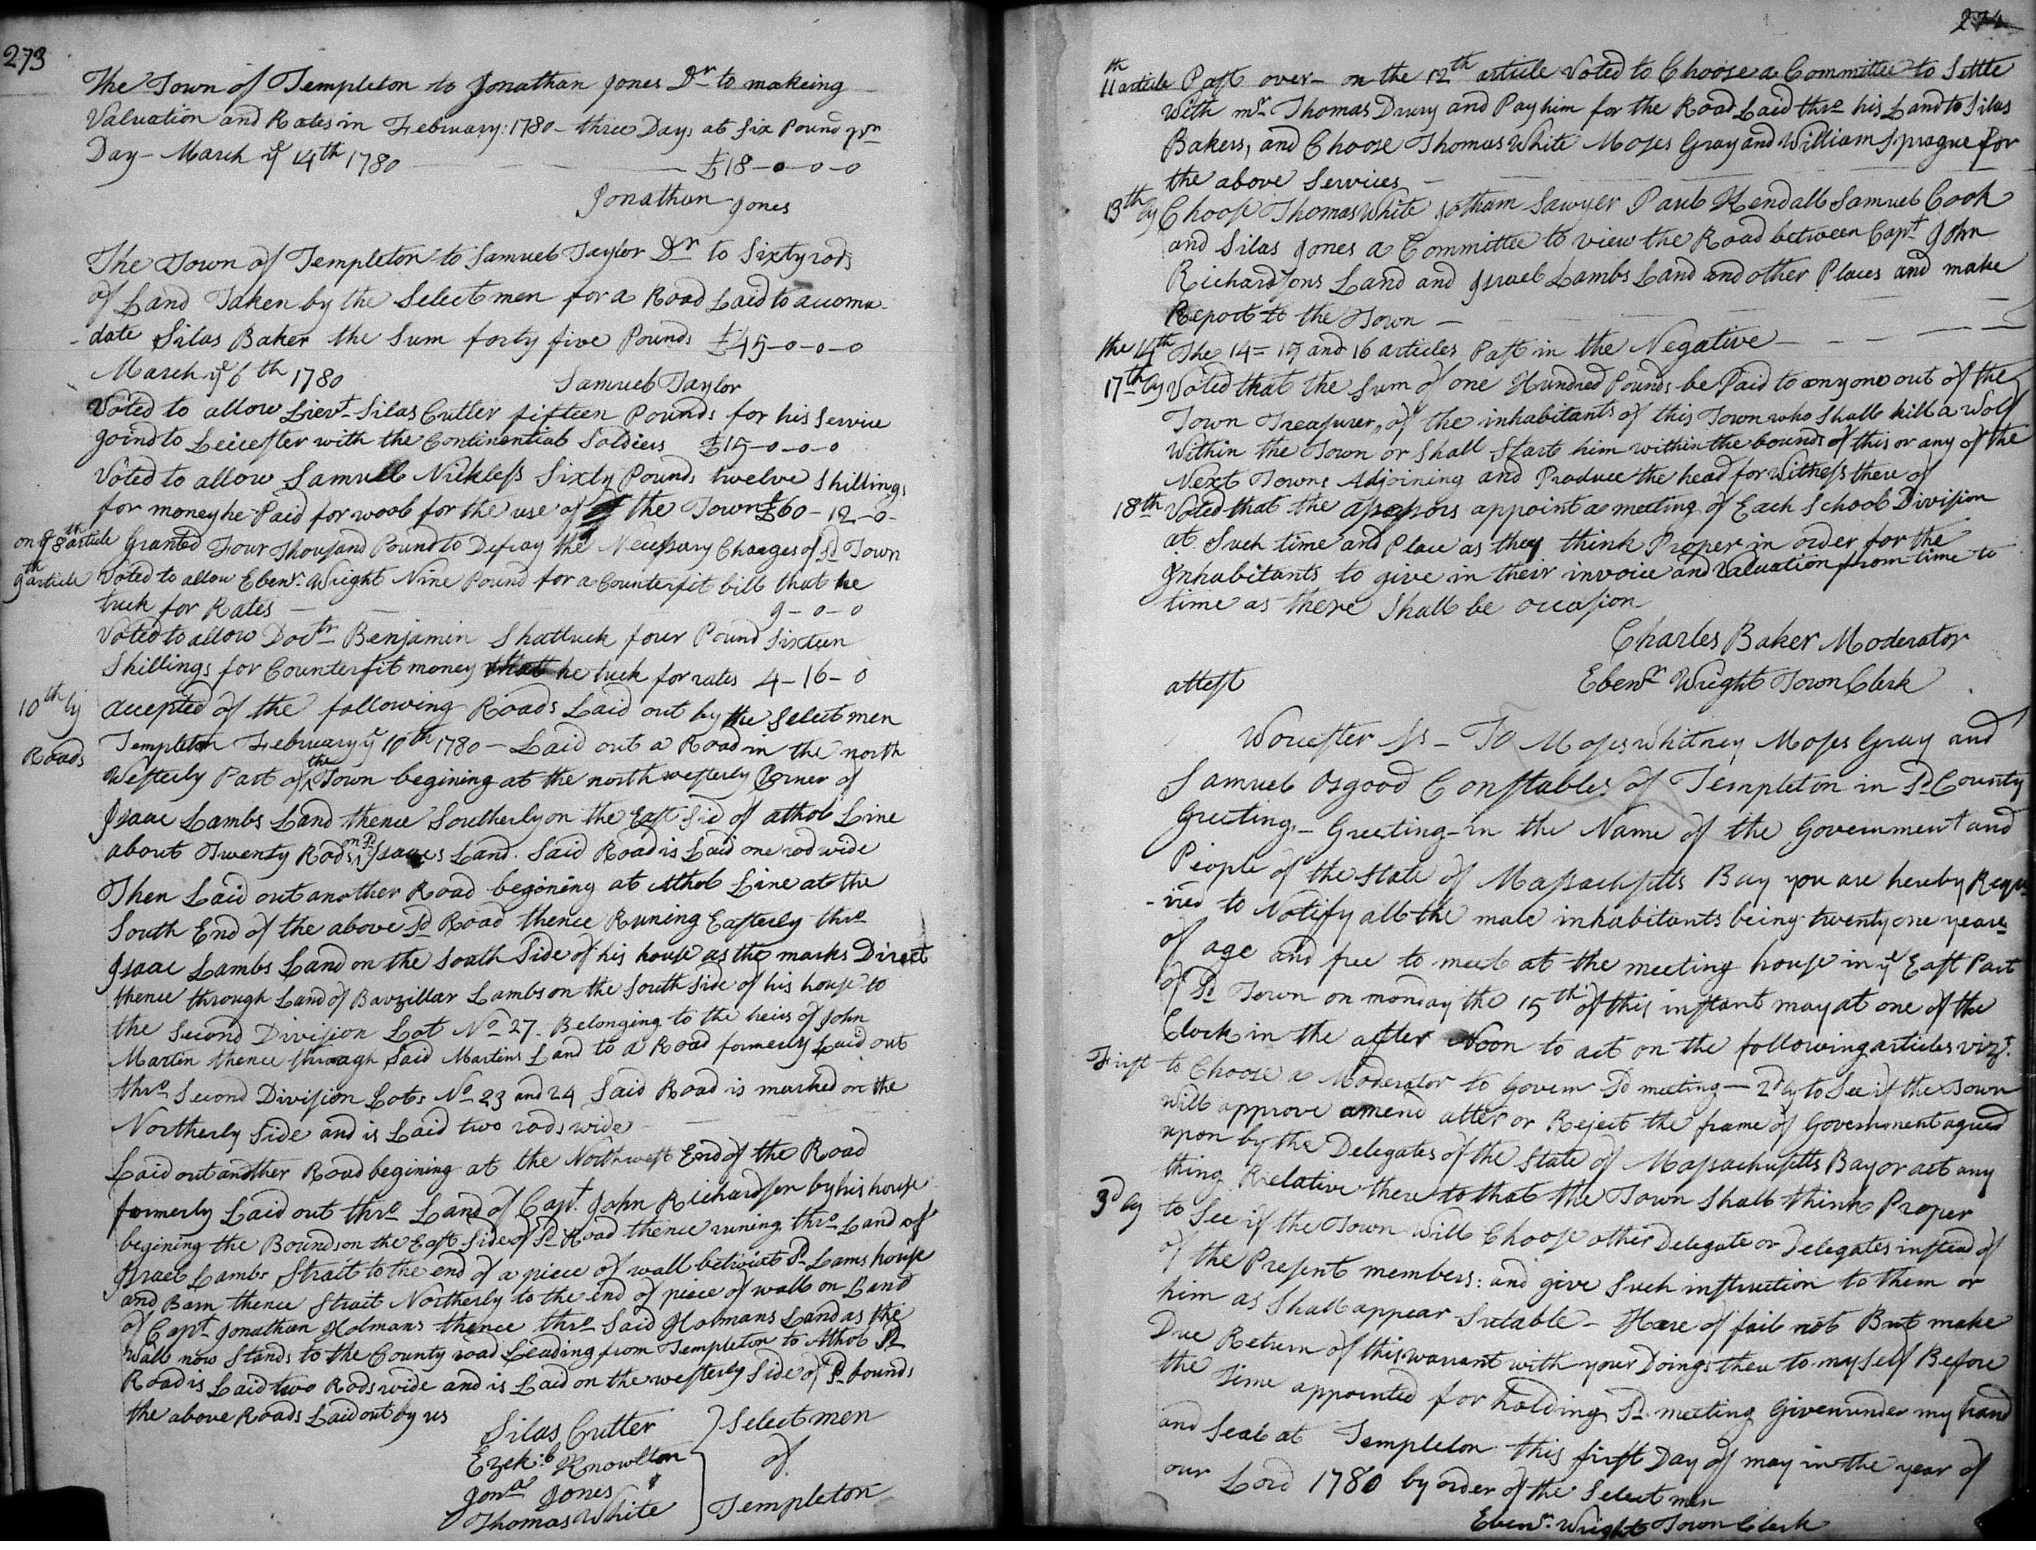 273
The Town of Templeton to Jonathan Jones Dr to makeing
Valuation and Rates in February: 1780 - three Days at Six Pound pr
Day - March ye 14th 1780 £18-0-0-0
Jonathan Jones
The Town of Templeton to Samuel Taylor Dr to Sixty rods
of Land Taken by the Select men for a Road Laid to accoma-
-date Silas Baker the Sum forty five Pounds £45-0-0-0
March ye 6th 1780 Samuel Taylor
Voted to allow Lievt Silas Cutler fifteen Pounds for his Service
goind to Leicester with the Continential Soldiers £15-0-0-0
Voted to allow Samuell Nickless Sixty Pounds twelve Shillings
for money he Paid for wool for the use of the Town £60-12-0-
on ye 8th article Granted Four Thousand Pound to Defray the Necessary Charges of sd Town
9th article Voted to allow Ebenr Wright Nine Pound for a Counterfit bill that he
tuck for Rates - 9-0-0
Voted to allow Doctr Benjamin Shattuck four Pound Sixteen
Shillings for Counterfit money that he tuck for rates 4-16-0
10thly accepted of the following Roads Laid out by the Select men
Roads Templeton February ye 10th 1780 - Laid out a Road in the north
Westerly Part of the Town begining at the north westerly Corner of
Isaac Lambs Land thence Southerly on the East Sid of athol Line
about Twenty Rods on sd Isaacs Land. Said Road is Laid one rod wide
Then Laid out another Road begining at Athol Line at the
South End of the above sd Road thence Runing Easterly thro
Isaac Lambs Land on the South Side of his house as the marks Direct
thence through Land of Barzillar Lambs on the South Side of his house to
the Second Division Lot No 27. Belonging to the heirs of John
Martin thence through Said Martins Land to a Road formerly Laid out
thro Second Division Lots No 23 and 24 Said Road is marked on the
Northerly Side and is Laid two rods wide -
Laid out another Road begining at the Northwest End of the Road
formerly Laid out thro Land of Capt John Richardson by his house
begining the Bounds on the East Side of sd Road thence runing thro Land of
Israel Lambs Strait to the end of a piece of wall betwixt sd Lams house
and Barn thence Strait Northerly to the end of piece of wall on Land
of Capt Jonathan Holmans thence thro Said Holmans Land as the
wall now Stands to the County road Leading from Templeton to Athol sd
Road is Laid two Rods wide and is Laid on the westerly Side of sd bounds
the above Roads Laid out by us
Silas Cutler
Ezekl Knowlton
Jona Jones
Thomas White
Select men
of
Templeton
274
11th article Past over - on the 12th article Voted to Choose a Committee to Settle
with mr Thomas Drury and Pay him for the Road Laid thro his Land to Silas
Bakers, and Choose Thomas White Moses Gray and William Sprague for
the above Services -
13thly Choose Thomas White Jotham Sawyer Paul Kendall Samuel Cook
and Silas Jones a Committee to view the Road between Capt John
Richardsons Land and Israel Lambs Land and other Places and make
Report to the Town -
the 14th The 14= 15 and 16 articles Past in the Negative -
17thly Voted that the Sum of one Hundred Pounds be Paid to any one out of the
Town Treasurer, of the inhabitants of this Town who Shall kill a Wolf
Within the Town or Shall Start him within the bounds of this or any of the
Next Towns Adjoining and Produce the head for Witness there of
18th Voted that the assessors appoint a meeting of Each School Division
at Such time and Place as they think Proper in order for the
Inhabitants to give in their invoice and Valuation from time to
time as there Shall be occasion
Charles Baker Moderator
attest Ebenr Wright Town Clerk
Worcester Ss - To Moses Whitney Moses Gray and
Samuel Osgood Constables of Templeton in sd County
Greeting - Greeting - in the Name of the Government and
People of the State of Massachsetts Bay you are hereby Requ
-ired to Notify all the male inhabitants being twenty one years
of age and free to meet at the meeting house in ye East Part
of sd Town on monday the 15th of this instant may at one of the
Clock in the after Noon to act on the following articles vizt.
First to Choose a Moderator to Govern sd meeting - 2dly to See if the Town
will approve amend alter or Reject the frame of Government agreed
upon by the Delegates of the State of Massachusetts Bay or act any
thing Relative there to that the Town Shall think Proper
3dly to See if the Town will Choose other Delegate or Delegates instead of
of the Present members: and give Such instruction to them or
him as Shall appear Sutable - Hare of fail not But make
Due Return of this warrant with your Doings there to my Self Before
the Time appointed for holding sd meeting Given under my hand
and Seal at Templeton this first Day of may in the year of
our Lord 1780 by order of the Select men
Ebenr Wright Town Clerk